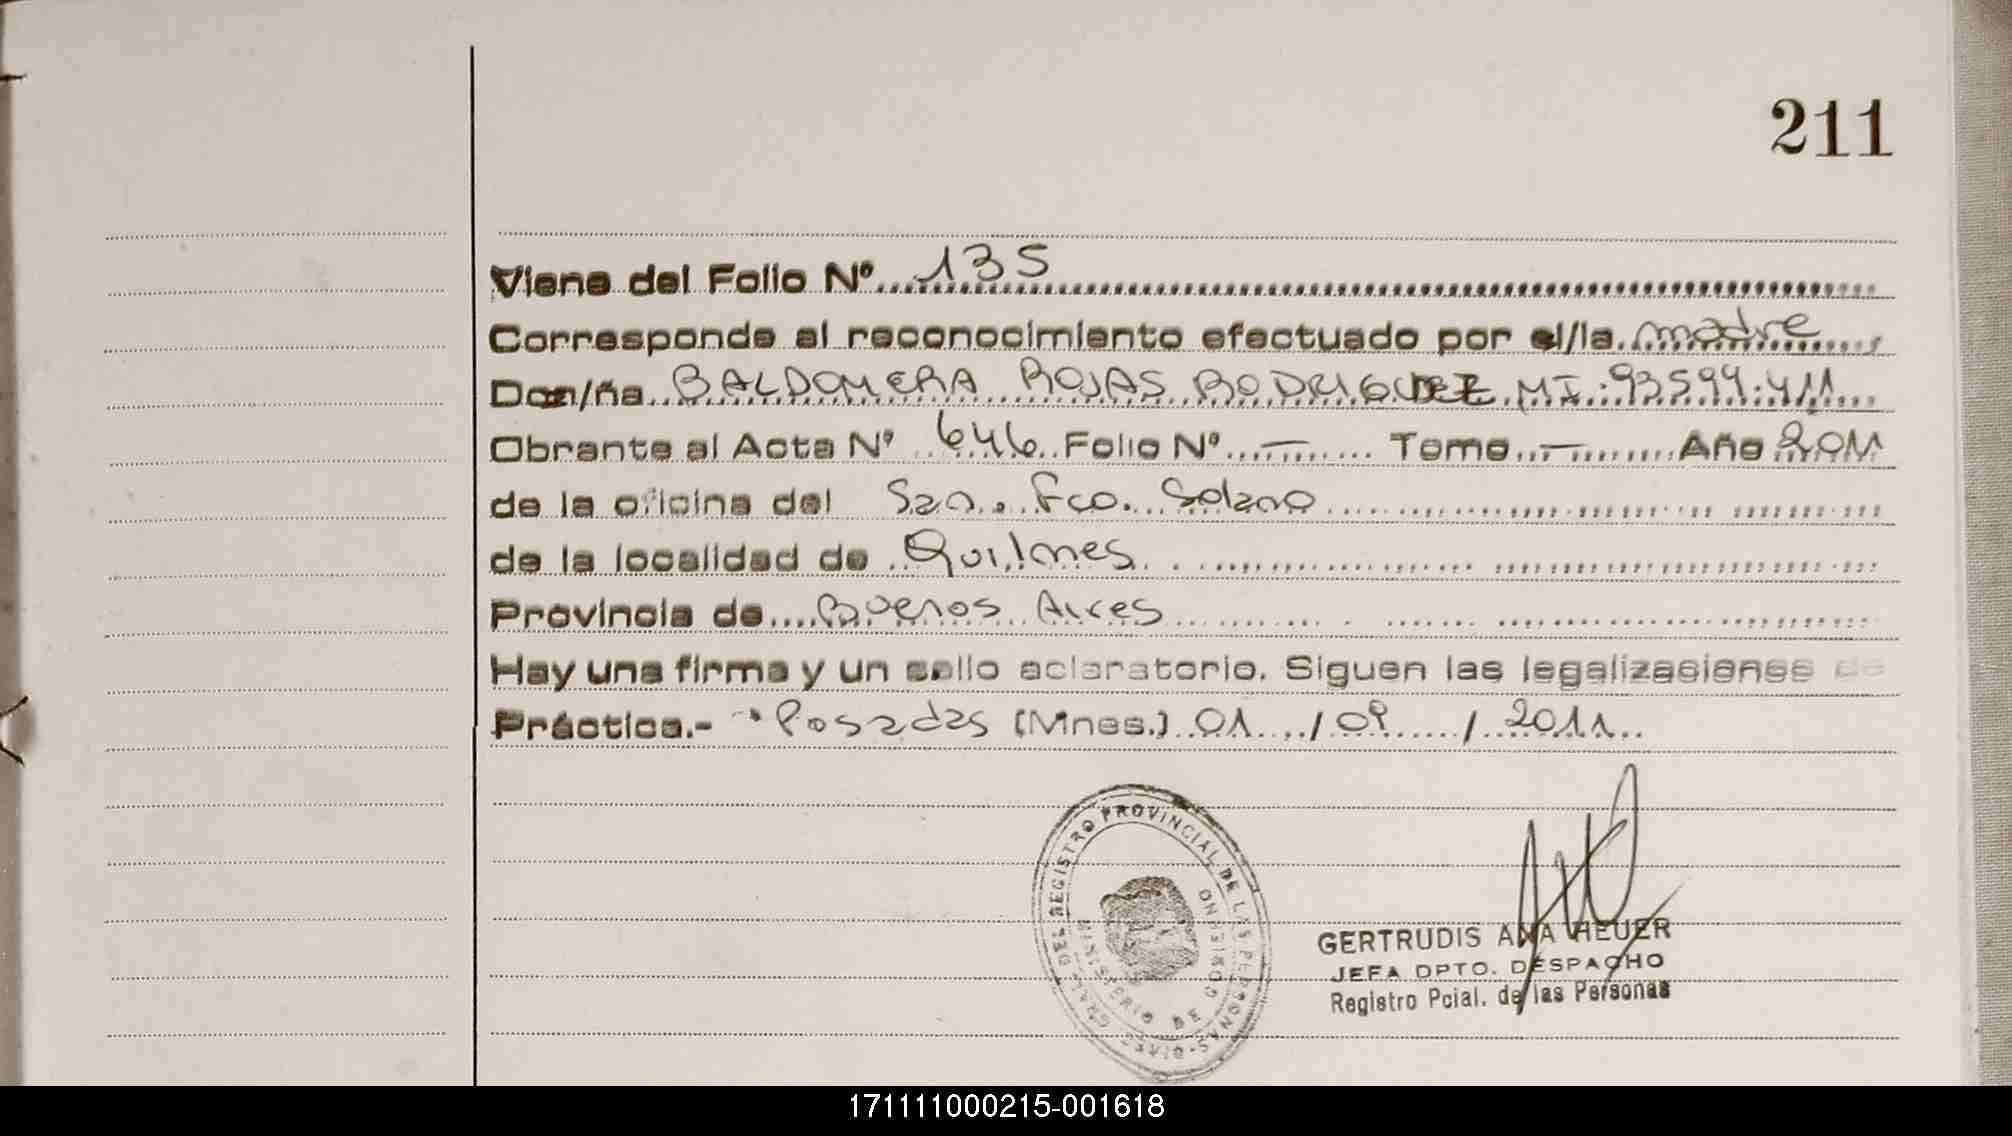 211
Viene del Folio Nº 135
Corresponde al reconocimiento efectuado por el/la madre
Don/ña BALDOMERA ROJAS RODRIGUEZ MI: 93599.411
Obrante al Acta Nº 646 Folio Nº — Tomo — Año 2011
de la oficina del San. Fco. Solano
de la localidad de Quilmes
Provincia de Buenos Aires
Hay una firma y un sello aclaratorio. Siguen las legalizaciones de
Práctica.- Posadas (Mnes.) 01 / 09 / 2011
GRAL. DEL REGISTRO PROVINCIAL DE LAS PERSONAS
MINISTERIO DE GOBIERNO
GERTRUDIS ANA HEUER
JEFA DPTO. DESPACHO
Registro Pcial. de las Personas
171111000215-001618